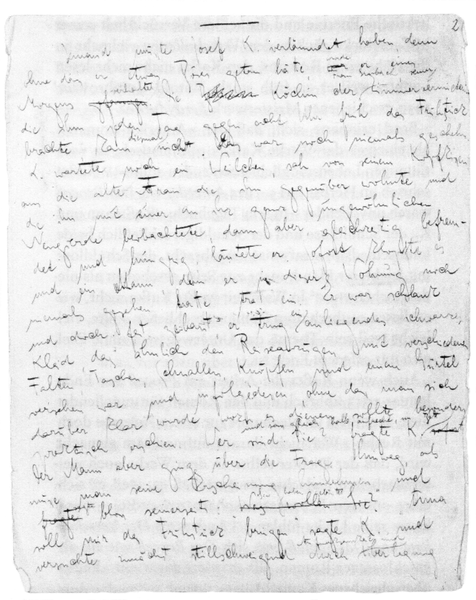 2
Jemand mußte Josef K. verläumdet haben, denn
ohne daß er etwas Böses getan hätte, wurde er eines
Morgens verhaftet. Die Köchin der Zimmervermieterin
die ihm jeden Tag gegen acht Uhr früh das Frühstück
brachte kam diesmal nicht. Das war noch niemals geschehn.
K. wartete noch ein Weilchen, sah von seinem Kopfkissen
aus die alte Frau die ihm gegenüber wohnte und
die ihn mit einer an ihr ganz ungewöhnlichen
Neugierde beobachtete, dann aber, gleichzeitig befrem-
det und hungrig, läutete er. Sofort klopfte es
und ein Mann, den er in dieser Wohnung noch
niemals gesehen hatte trat ein. Er war schlank
und doch fest gebaut, er trug ein anliegendes schwarzes
Kleid, das ähnlich den Reiseanzügen mit verschiedenen
Falten, Taschen, Schnallen, Knöpfen und einem Gürtel
versehen war und infolgedessen, ohne daß man sich
darüber klar wurde, wozu es dienen sollte, besonders
praktisch erschien. Wer sind Sie? fragte K. und saß gleich halb aufrecht im Bett
Der Mann aber ging über die Frage hinweg, als
müsse man seine Erscheinung hinnehmen und
sagte bloß seinerseits: Sie haben geläutet? Anna
soll mir das Frühstück bringen sagte K. und
versuchte zunächst stillschweigend durch Überlegung